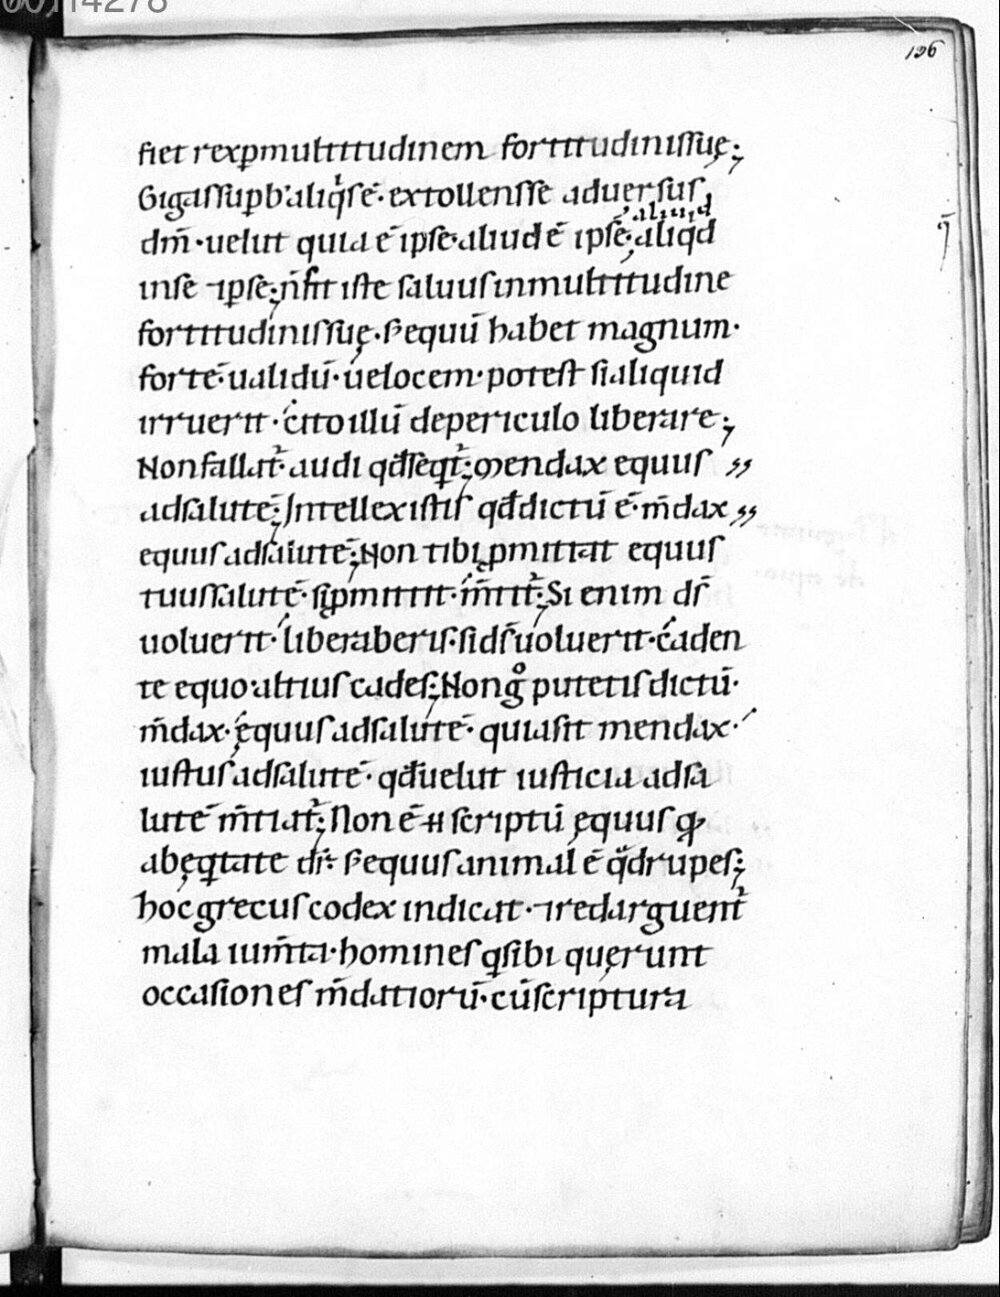 00114278
126
fiet rex ꝑ multitudinem fortitudinis suę;
Gigas suꝑb' aliqͥs ē· extollens se aduersus
aliud
dm̄· uelut quia ē ipse· aliud ē ipse; aliqd
in se ⁊ ipse; n̄ fit iste saluus in multitudine
fortitudinis suę· S equū habet magnum·
fortē· ualidū· uelocem· potest si aliquid
irruerit· cito illū de periculo liberare;
Non fallat̉· audi qđ seqt̉; mendax equus
ad salutē; Intellexistis qđ dictū ē· m̄dax
equus ad salutē; Non tibi ꝓmittat equus
tuus salutē· si ꝓmittit· m̄tit̉; Si enim ds̄
uoluerit· liberaberis· si ds̄ uoluerit· caden
te equo· altius cades; Non gͦ putetis dictū·
m̄dax· ęquus ad salutē· quia sit mendax·
iustus ad salutē· qđ uelut iusticia ad sa
lutē m̄tiat̉; Non ē H scriptū ęquus ꝙ
ab ęqtate dr̄· S equus animal ē qͣdrupes;
hoc grecus codex indicat· ⁊ redarguent̉
mala ium̄ta· homines q sibi quęrunt
occasiones m̄datiorū· cū scriptura